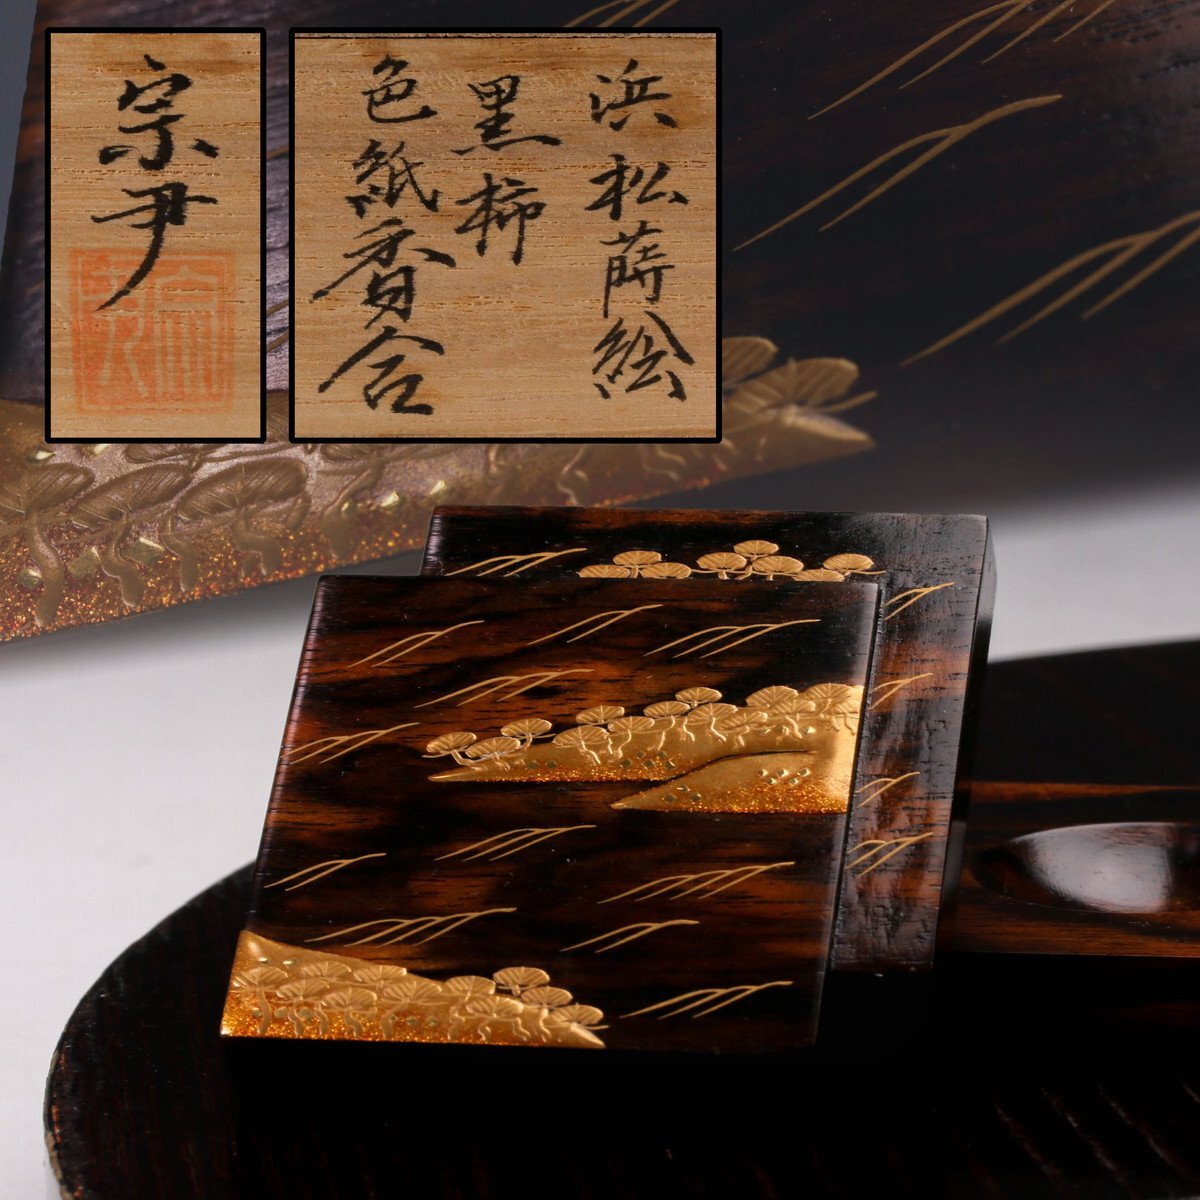 浜松蒔絵
黒柿
色紙香合
宗尹